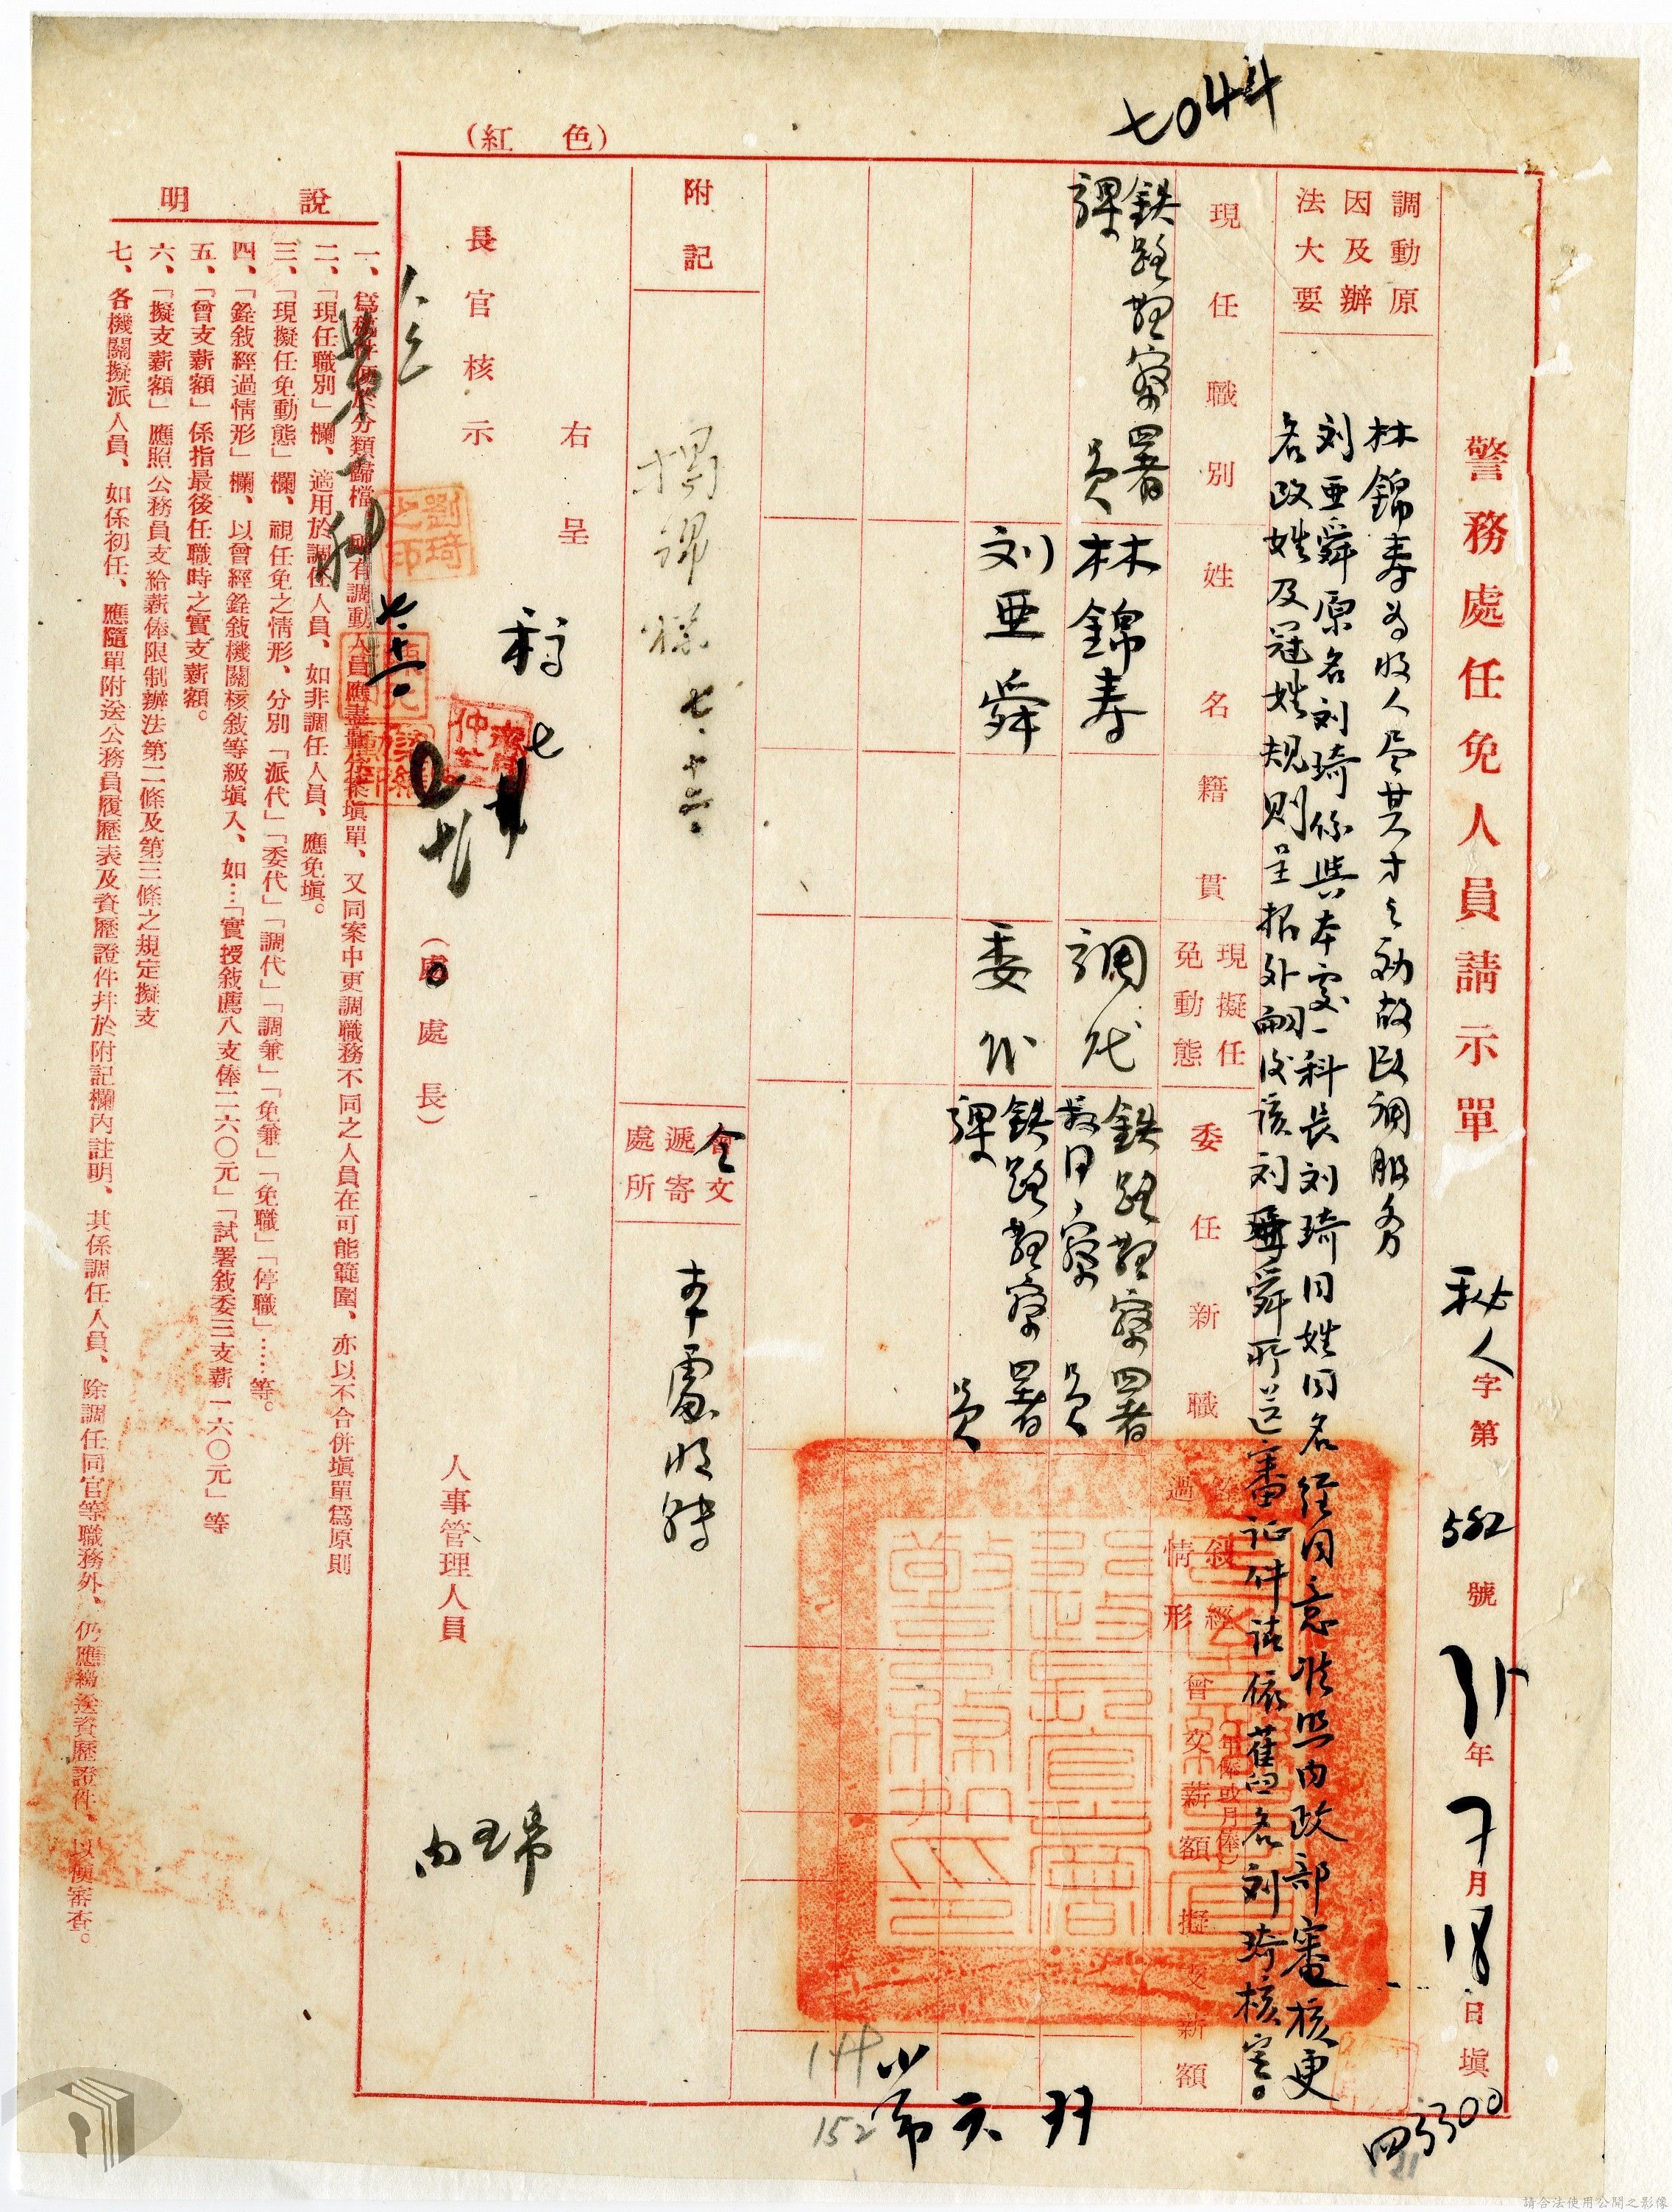 七044
(紅色)
警務處任免人員請示單
秘人字第582號
年7月18日填
調動原因及辦法大要
林錦寿為收人尽其才之効故改調服务
刘亜舜原名刘琦係與本處一科長刘琦同姓同名経同意准照内政部審核更
名改姓及冠姓規則呈报外嗣後該刘亜舜所送審証件請依舊名刘琦核定。
現任職別
姓名
籍貫
現擬任免動態
委任新職
銓敍經過情形
曾支薪額(年俸或月俸)
擬支薪額
鉄路警察署課員
林錦寿
調代
鉄路警察署
警察員
刘亜舜
委代
鉄路警察署課員
附記
七、十六、
令文遞寄處所
本處収轉
右呈
長官核示
(處處長)
人事管理人員
劉琦之印
第一科
說明
一、為稿件便於分類歸檔、所有調動人員應盡量分案填單、又同案中更調職務不同之人員在可能範圍、亦以不合併填單為原則
二、「現任職別」欄、適用於調任人員、如非調任人員、應免填。
三、「現擬任免動態」欄、視任免之情形、分別「派代」「委代」「調代」「調兼」「免兼」「免職」「停職」……等。
四、「銓敍經過情形」欄、以曾經銓敍機關核敍等級塡入、如…「實授敍薦八支俸二六〇元」「試署敍委三支薪一六〇元」等
五、「曾支薪額」係指最後任職時之實支薪額。
六、「擬支薪額」應照公務員支給薪俸限制辦法第二條及第三條之規定擬支
七、各機關擬派人員、如係初任、應隨單附送公務員履歷表及資歷證件幷於附記欄內註明、其係調任人員、除調任同官等職務外、仍應繳送資歷證件、以便審查。
144
152
請合法使用公開之影像